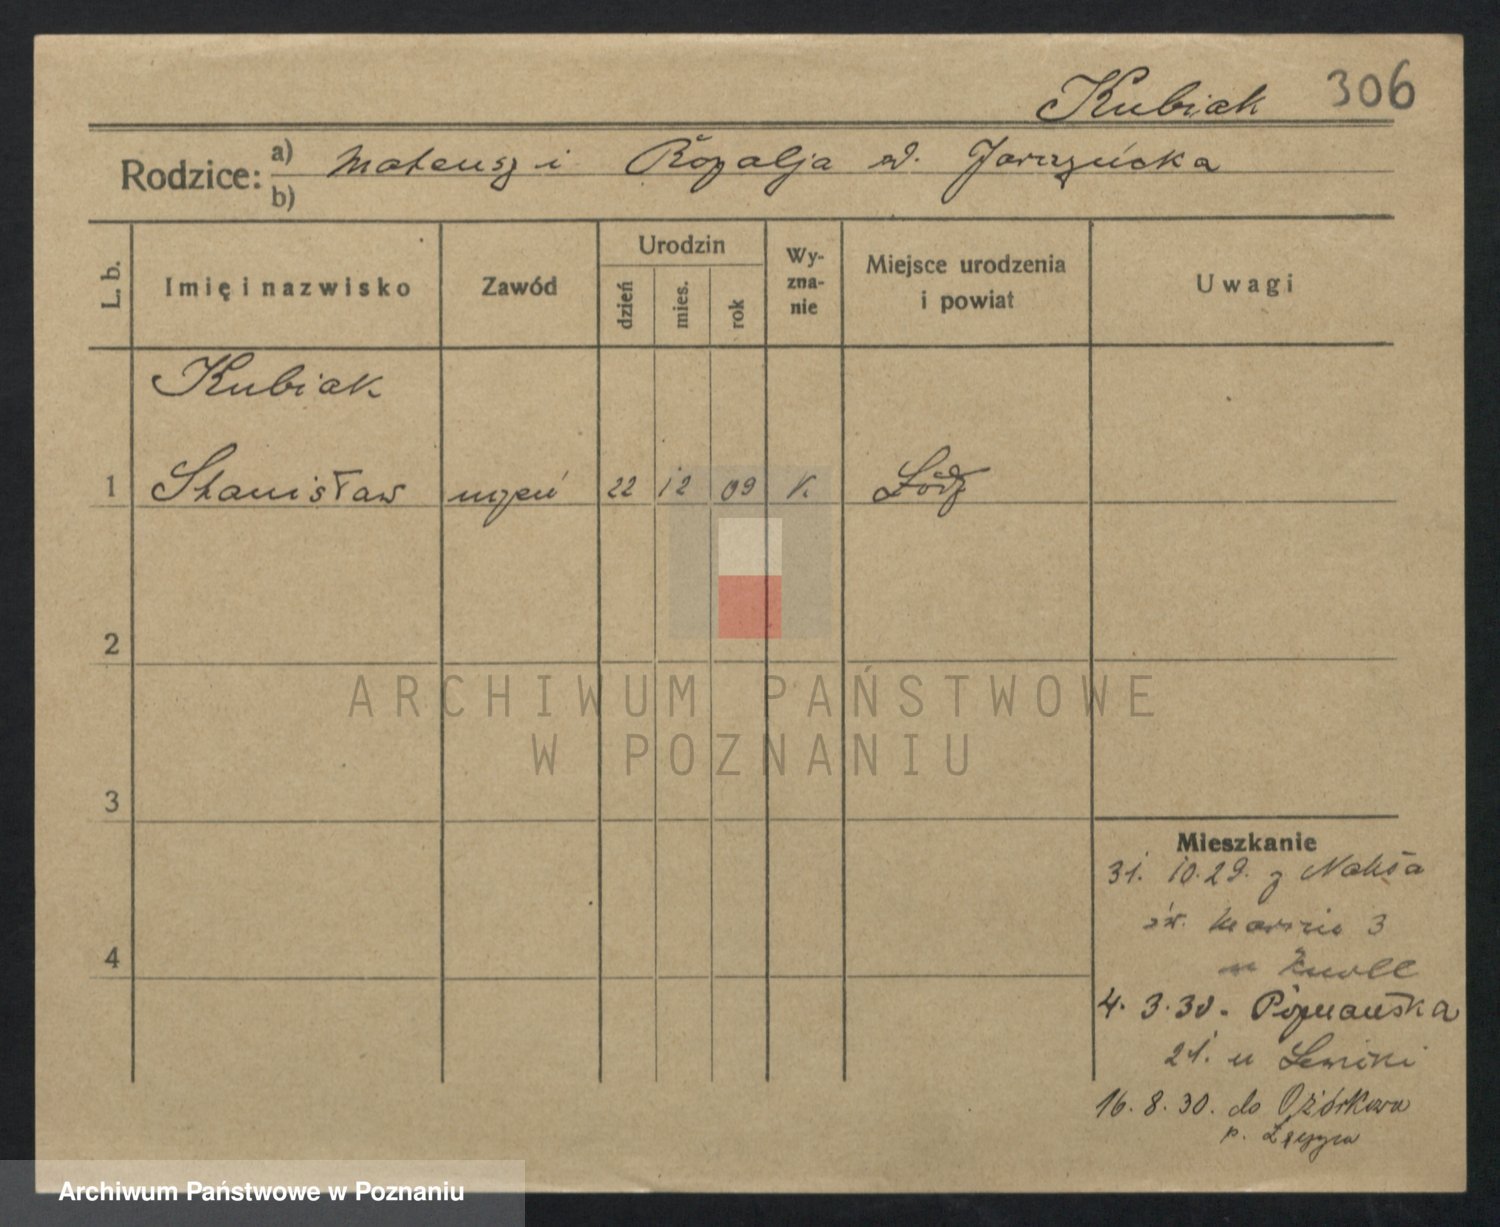 Kubiak 306
Rodzice: a) Mateusz i Rozalja d.
b)
L. b.
Imię i nazwisko
Zawód
Urodzin
dzień
mies.
rok
Wy-
zna-
nie
Miejsce urodzenia
i powiat
Uwagi
Kubiak
1 Stanisław uczeń 22 12 09 K Łódź
2
3
4
Mieszkanie
31. 10. 29. z Nakła
św. Marcin 3
u Knoll
4. 3. 30. Poznańska
21. u
16. 8. 30. do Ozórkowa
p.
ARCHIWUM PAŃSTWOWE
W POZNANIU
Archiwum Państwowe w Poznaniu